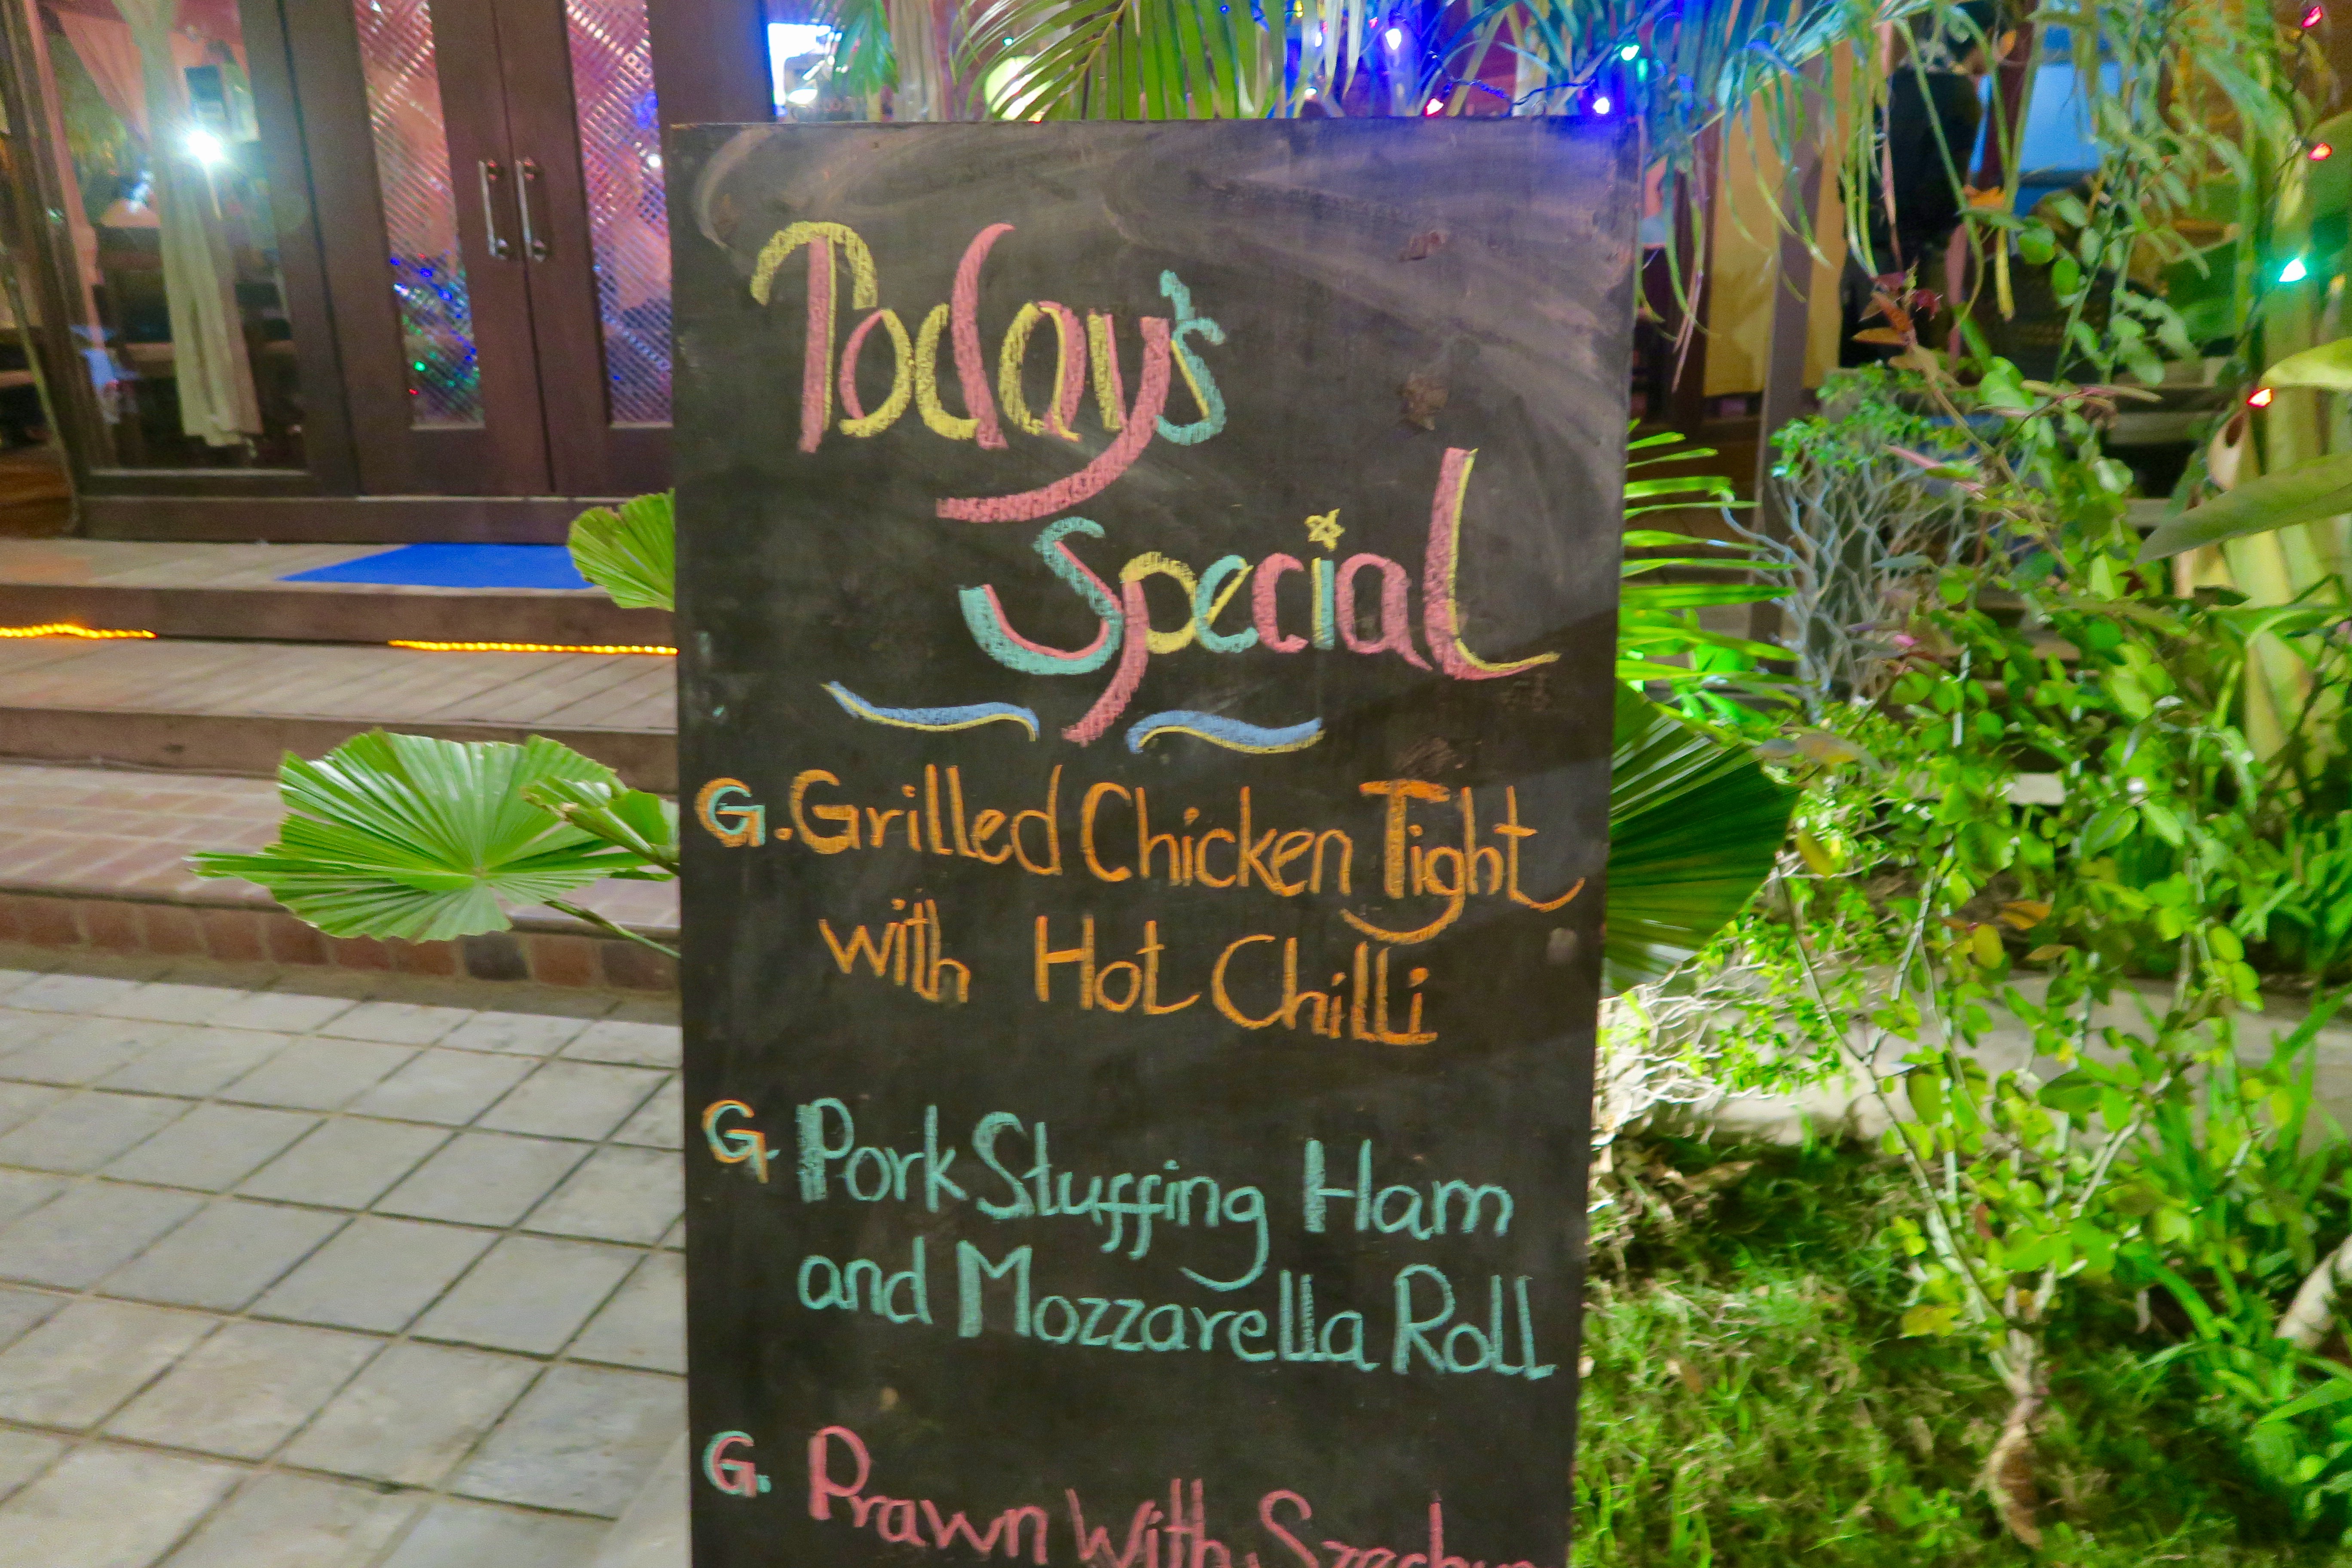 Today's
Special
G. Grilled Chicken Tight
with Hot Chilli
G. Pork Stuffing Ham
and Mozzarella Roll
G. Prawn With